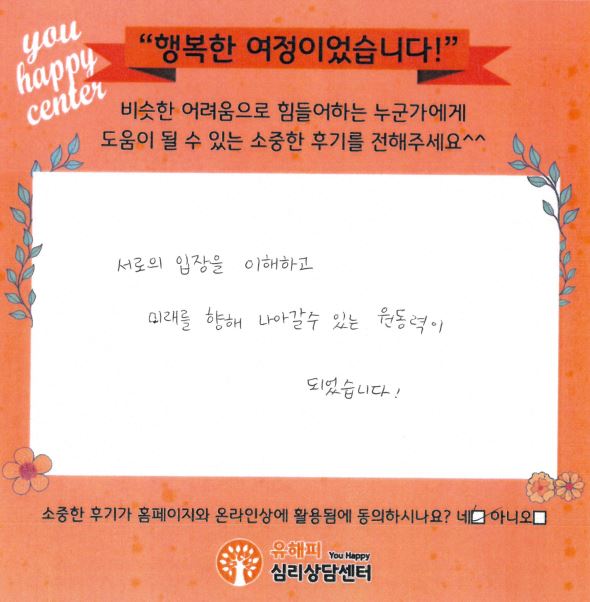 you
happy
center
“행복한 여정이었습니다!”
비슷한 어려움으로 힘들어하는 누군가에게
도움이 될 수 있는 소중한 후기를 전해주세요^^
서로의 입장을 이해하고
미래를 향해 나아갈수 있는 원동력이
되었습니다!
소중한 후기가 홈페이지와 온라인상에 활용됨에 동의하시나요? 네☑ 아니오☐
유해피 You Happy
심리상담센터